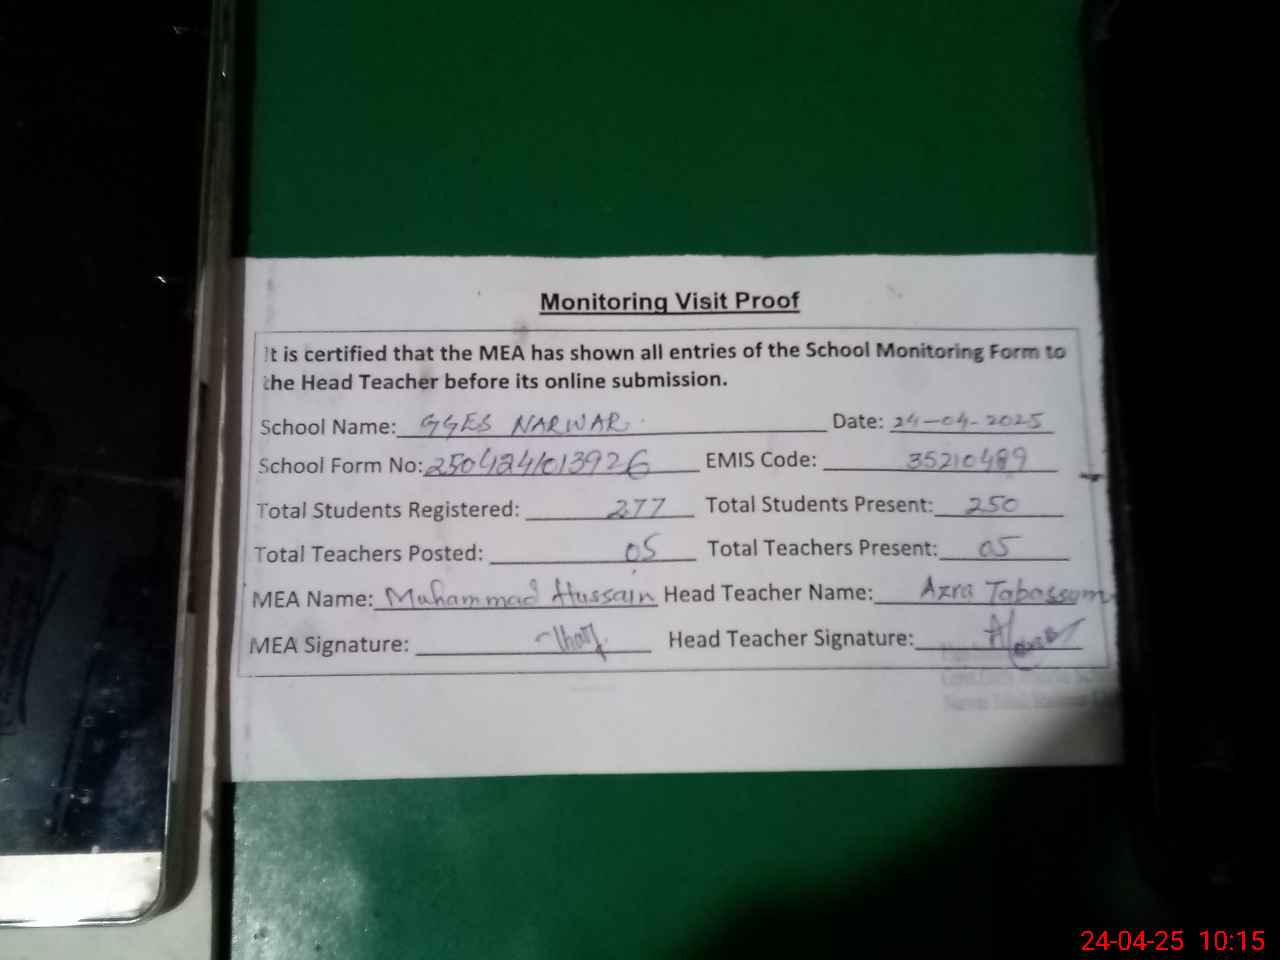 Monitoring Visit Proof
It is certified that the MEA has shown all entries of the School Monitoring Form to
the Head Teacher before its online submission.
School Name: GGES NARWAR. Date: 24-04-2025
School Form No: 2504241013926 EMIS Code: 35210489
Total Students Registered: 277 Total Students Present: 250
Total Teachers Posted: 05 Total Teachers Present: 05
MEA Name: Muhammad Hussain Head Teacher Name: Azra Tabassum
MEA Signature: Head Teacher Signature:
24-04-25 10:15